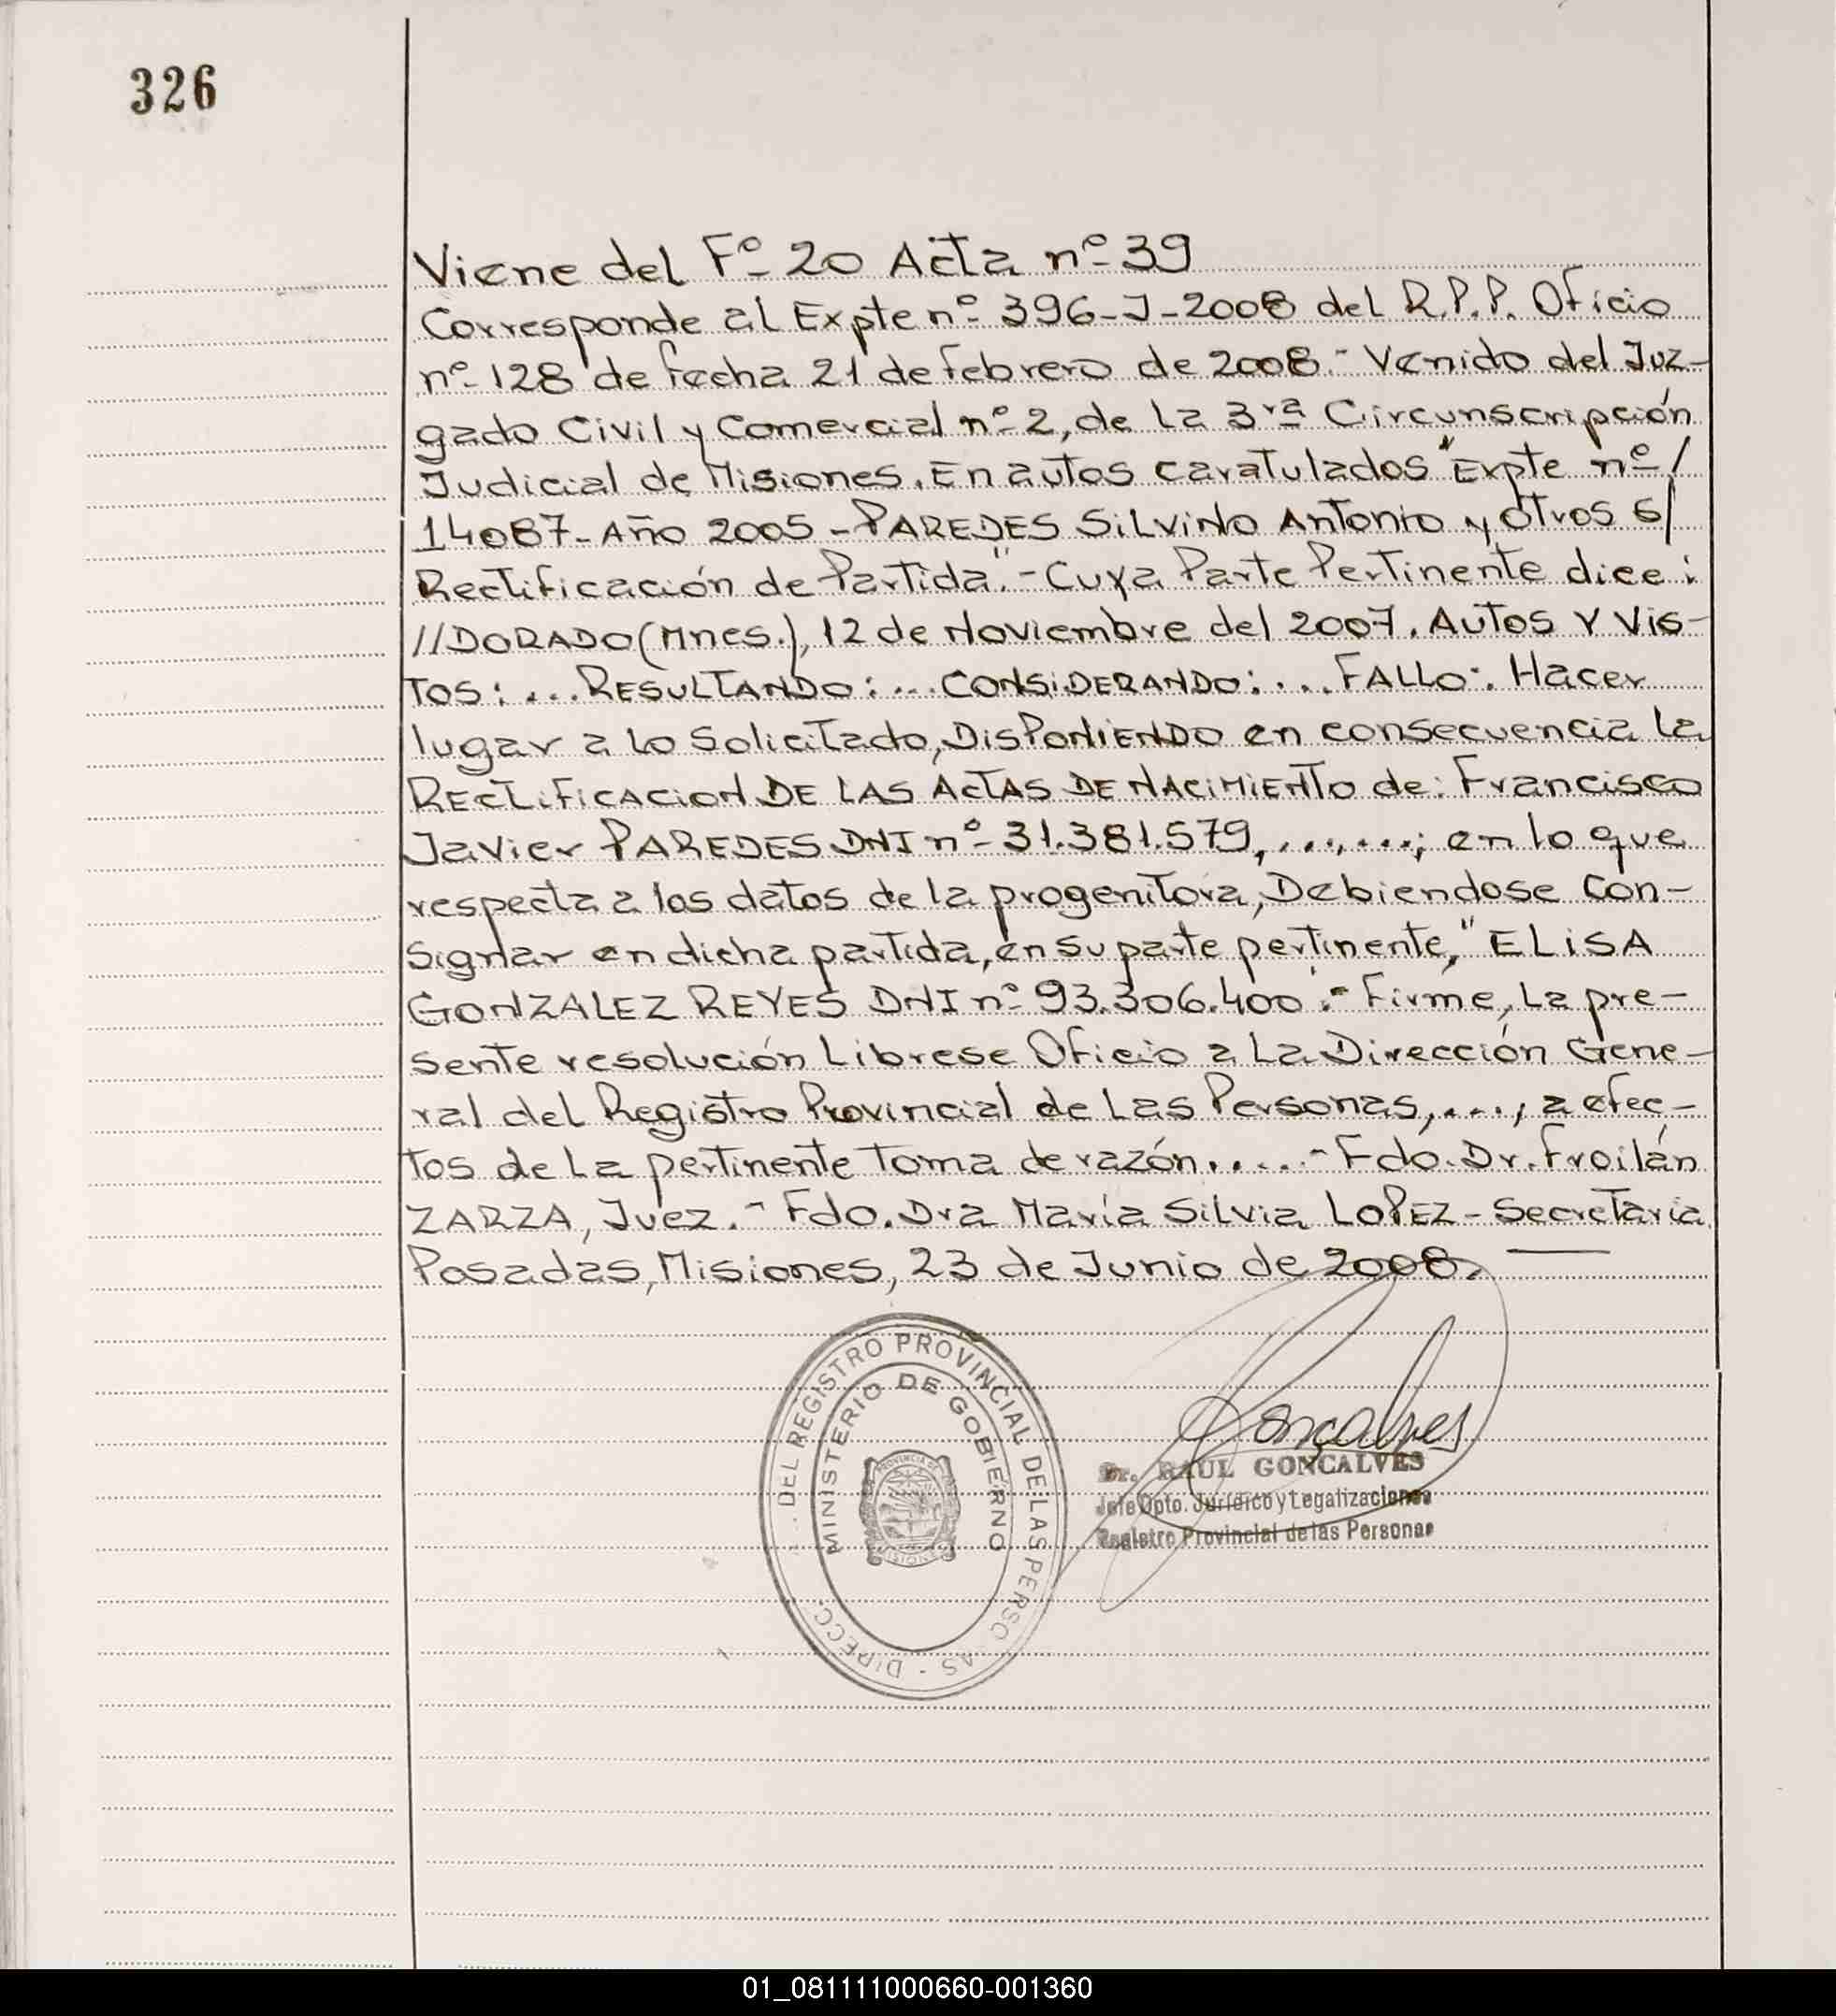 326
Viene del Fº 20 Acta nº 39
Corresponde al Expte nº 396-J-2008 del R.P.P. Oficio
nº 128 de fecha 21 de febrero de 2008.- Venido del Juz-
gado Civil y Comercial nº 2, de la 3ra Circunscripción
Judicial de Misiones. En autos caratulados "Expte nº/
14087-Año 2005-PAREDES SILVINO Antonio y otros s/
Rectificación de Partida".-Cuya Parte Pertinente dice:
//DORADO (Mnes.), 12 de Noviembre del 2007. Autos Y Vis-
tos:...RESULTANDO:...CONSIDERANDO:...FALLO: Hacer
lugar a lo Solicitado, DISPONIENDO en consecuencia la
RECTIFICACION DE LAS ACTAS DE NACIMIENTO de: Francisco
Javier PAREDES DNI nº 31.381.579,...,...; en lo que
respecta a los datos de la progenitora, Debiendose Con-
signar en dicha partida, en su parte pertinente, "ELISA
GONZALEZ REYES DNI nº 93.306.400".- Firme, La pre-
sente resolución Librese Oficio a La Dirección Gene-
ral del Registro Provincial de Las Personas,...; a efec-
tos de La pertinente Toma de razón.....- Fdo. Dr. Froilán
ZARZA, Juez.- Fdo. Dra María Silvia LOPEZ-Secretaria
Posadas, Misiones, 23 de Junio de 2008.
DIRECC. DEL REGISTRO PROVINCIAL DE LAS PERSO AS -
MINISTERIO DE GOBIERNO
PROVINCIA DE
MISIONES
Goncalves
Dr. RAUL GONCALVES
Jefe Dpto. Jurídico y Legalizaciones
Registro Provincial de las Personas
01_081111000660-001360